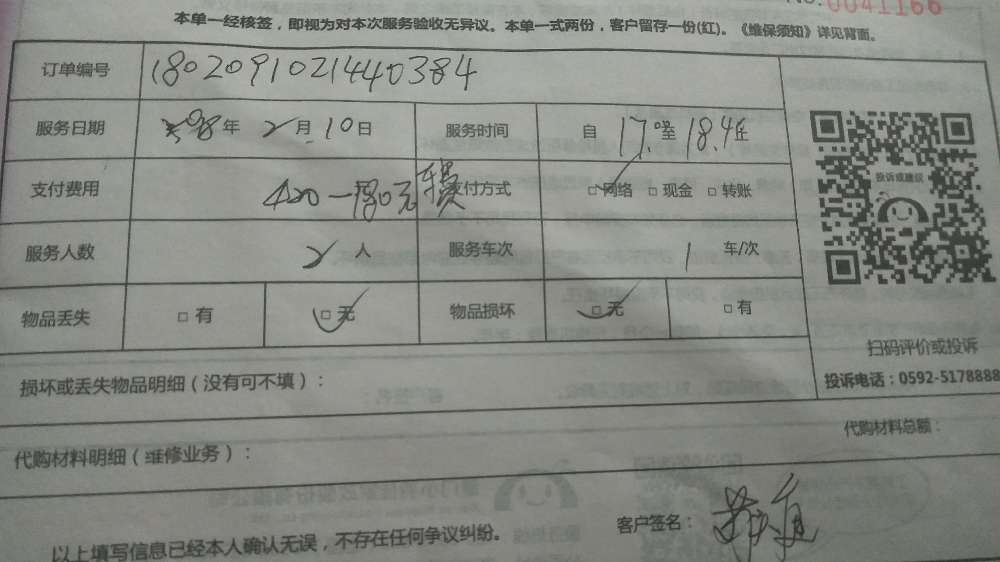 No.0041166
本单一经核签，即视为对本次服务验收无异议。本单一式两份，客户留存一份(红)。《维保须知》详见背面。
订单编号 180209102144 0384
服务日期 年 2月10日 服务时间 自 17.00至18.45
支付费用 420 元 支付方式 □网络 □现金 □转账
投诉或建议
服务人数 2 人 服务车次 1 车/次
物品丢失 □有 □无 物品损坏 □无 □有
扫码评价或投诉
损坏或丢失物品明细（没有可不填）：
投诉电话：0592-5178888
代购材料总额：
代购材料明细（维修业务）：
客户签名：
以上填写信息已经本人确认无误，不存在任何争议纠纷。